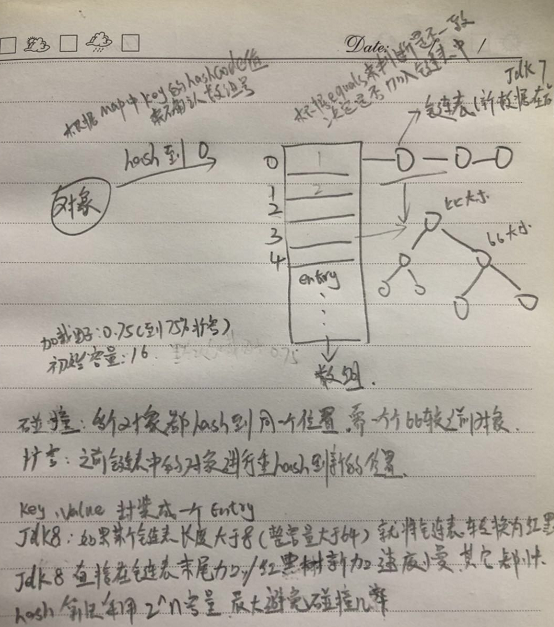 Date:
根据map中key的hashCode值
来确认数组号
根据equals来判断是否一致
决定是否加入链表中
Jdk7
链表(新数据在前
hash到 0
对象
0
1
2
3
4
1
2
entry
比大小
比大小
加载因子:0.75(到75%扩容)
初始容量:16
数组.
碰撞:每个对象都hash到同一个位置,需一个个比较之前对象.
扩容:之前链表中的对象进行重hash到新的位置.
key,value 封装成一个Entry
Jdk8:如果某个链表长度大于8(整容量大于64)就将链表转换为红黑
Jdk8 直接在链表末尾加,红黑树新加速度慢,其它都快.
hash算法采用2^n容量,最大避免碰撞几率